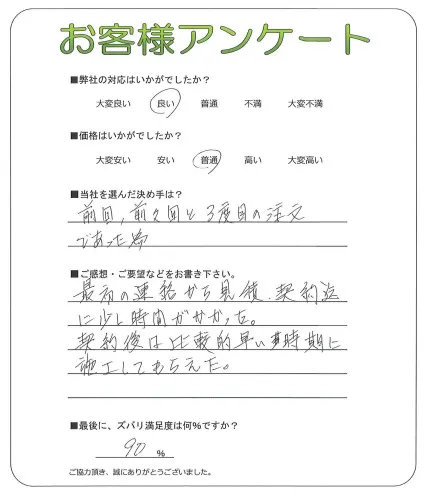 お客様アンケート
■弊社の対応はいかがでしたか？
大変良い 良い 普通 不満 大変不満
■価格はいかがでしたか？
大変安い 安い 普通 高い 大変高い
■当社を選んだ決め手は？
前回，前々回と3度目の注文
であった為
■ご感想・ご要望などをお書き下さい。
最初の連絡から見積．契約迄
に少し時間がかかった。
契約後は比較的早い時期に
施工してもらえた。
■最後に、ズバリ満足度は何％ですか？
90 ％
ご協力頂き、誠にありがとうございました。